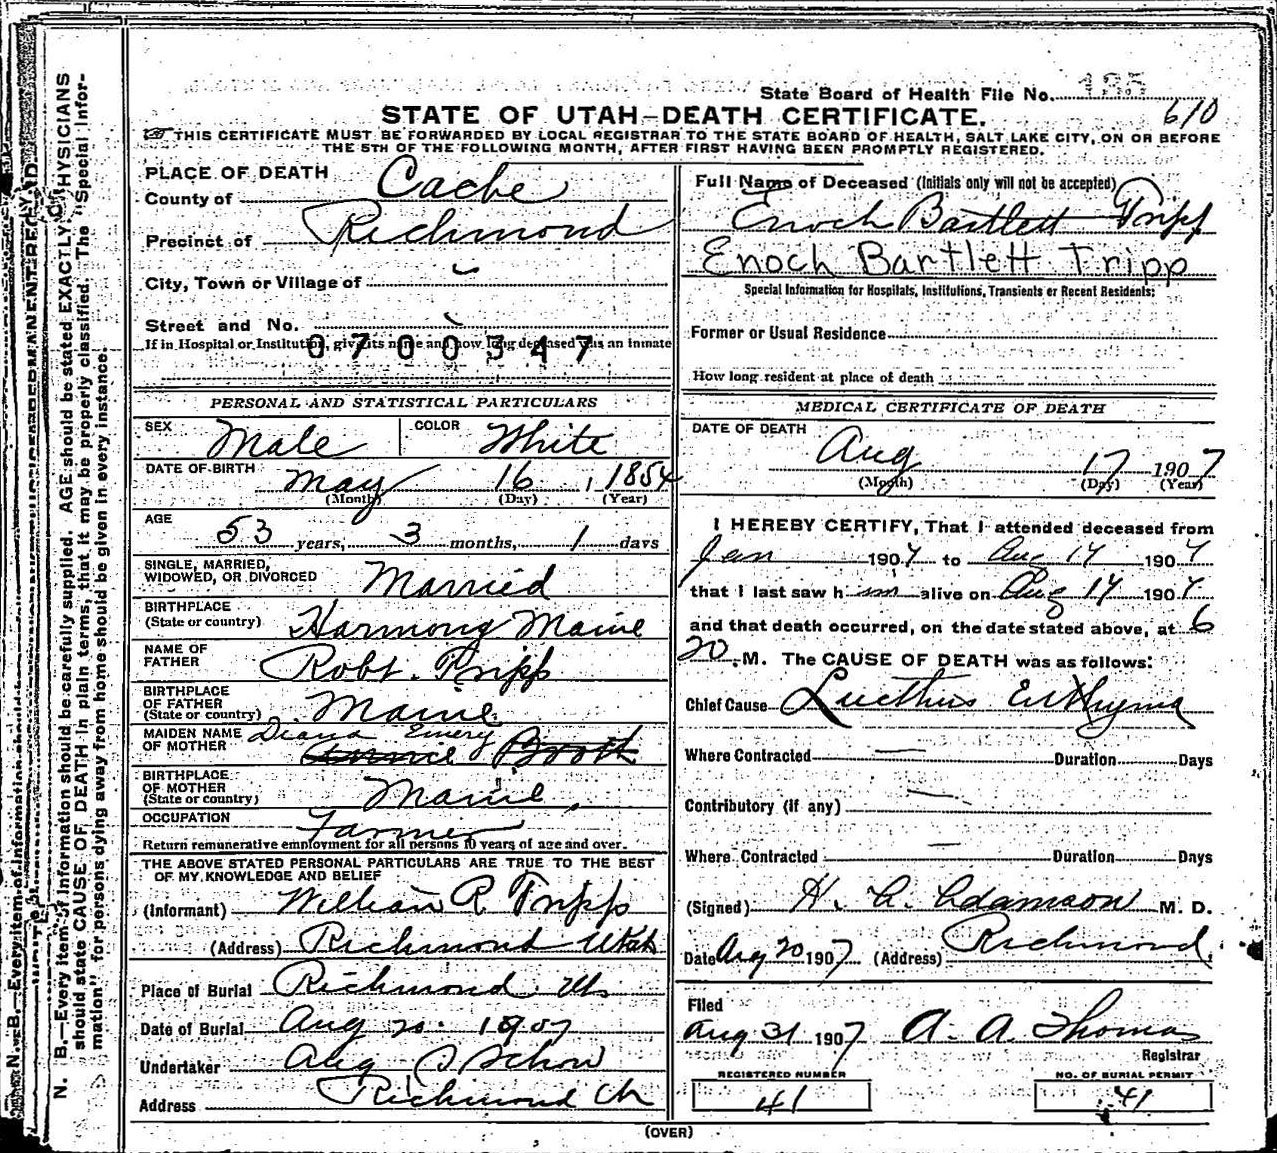 State Board of Health File No. 135
610
STATE OF UTAH—DEATH CERTIFICATE.
THIS CERTIFICATE MUST BE FORWARDED BY LOCAL REGISTRAR TO THE STATE BOARD OF HEALTH, SALT LAKE CITY, ON OR BEFORE
THE 5TH OF THE FOLLOWING MONTH, AFTER FIRST HAVING BEEN PROMPTLY REGISTERED.
PLACE OF DEATH
County of Cache
Precinct of Richmond
City, Town or Village of
Street and No.
If in Hospital or Institution, give its name and how long deceased was an inmate
0700347
PERSONAL AND STATISTICAL PARTICULARS
SEX Male COLOR White
DATE OF BIRTH May 16, 1854
(Month) (Day) (Year)
AGE 53 years, 3 months, 1 days
SINGLE, MARRIED,
WIDOWED, OR DIVORCED Married
BIRTHPLACE
(State or country) Harmony Maine
NAME OF
FATHER Robt. Tripp
BIRTHPLACE
OF FATHER
(State or country) Maine
MAIDEN NAME
OF MOTHER Diana Emery
BIRTHPLACE
OF MOTHER
(State or country) Maine
OCCUPATION Farmer
Return remunerative employment for all persons 10 years of age and over.
THE ABOVE STATED PERSONAL PARTICULARS ARE TRUE TO THE BEST
OF MY KNOWLEDGE AND BELIEF
(Informant) William R Tripp
(Address) Richmond Utah
Place of Burial Richmond
Date of Burial Aug 20. 1907
Undertaker Aug S Schow
Address Richmond
Full Name of Deceased (Initials only will not be accepted)
Enoch Bartlett Tripp
Enoch Bartlett Tripp
Special Information for Hospitals, Institutions, Transients or Recent Residents:
Former or Usual Residence
How long resident at place of death
MEDICAL CERTIFICATE OF DEATH
DATE OF DEATH
Aug 17 1907
(Month) (Day) (Year)
I HEREBY CERTIFY, That I attended deceased from
Jan 1907 to Aug 17 1907
that I last saw h im alive on Aug 17 1907
and that death occurred, on the date stated above, at 6
20 .M. The CAUSE OF DEATH was as follows:
Chief Cause
Where Contracted Duration Days
Contributory (if any)
Where Contracted Duration Days
(Signed) H. A. Adamson M. D.
Date Aug 20 1907 (Address) Richmond
Filed
Aug 31 1907 A. A. Thomas
Registrar
REGISTERED NUMBER
41
NO. OF BURIAL PERMIT
41
(OVER)
N. B.—Every item of information should be carefully supplied. AGE should be stated EXACTLY. PHYSICIANS
should state CAUSE OF DEATH in plain terms, that it may be properly classified. The "Special Infor-
mation" for persons dying away from home should be given in every instance.